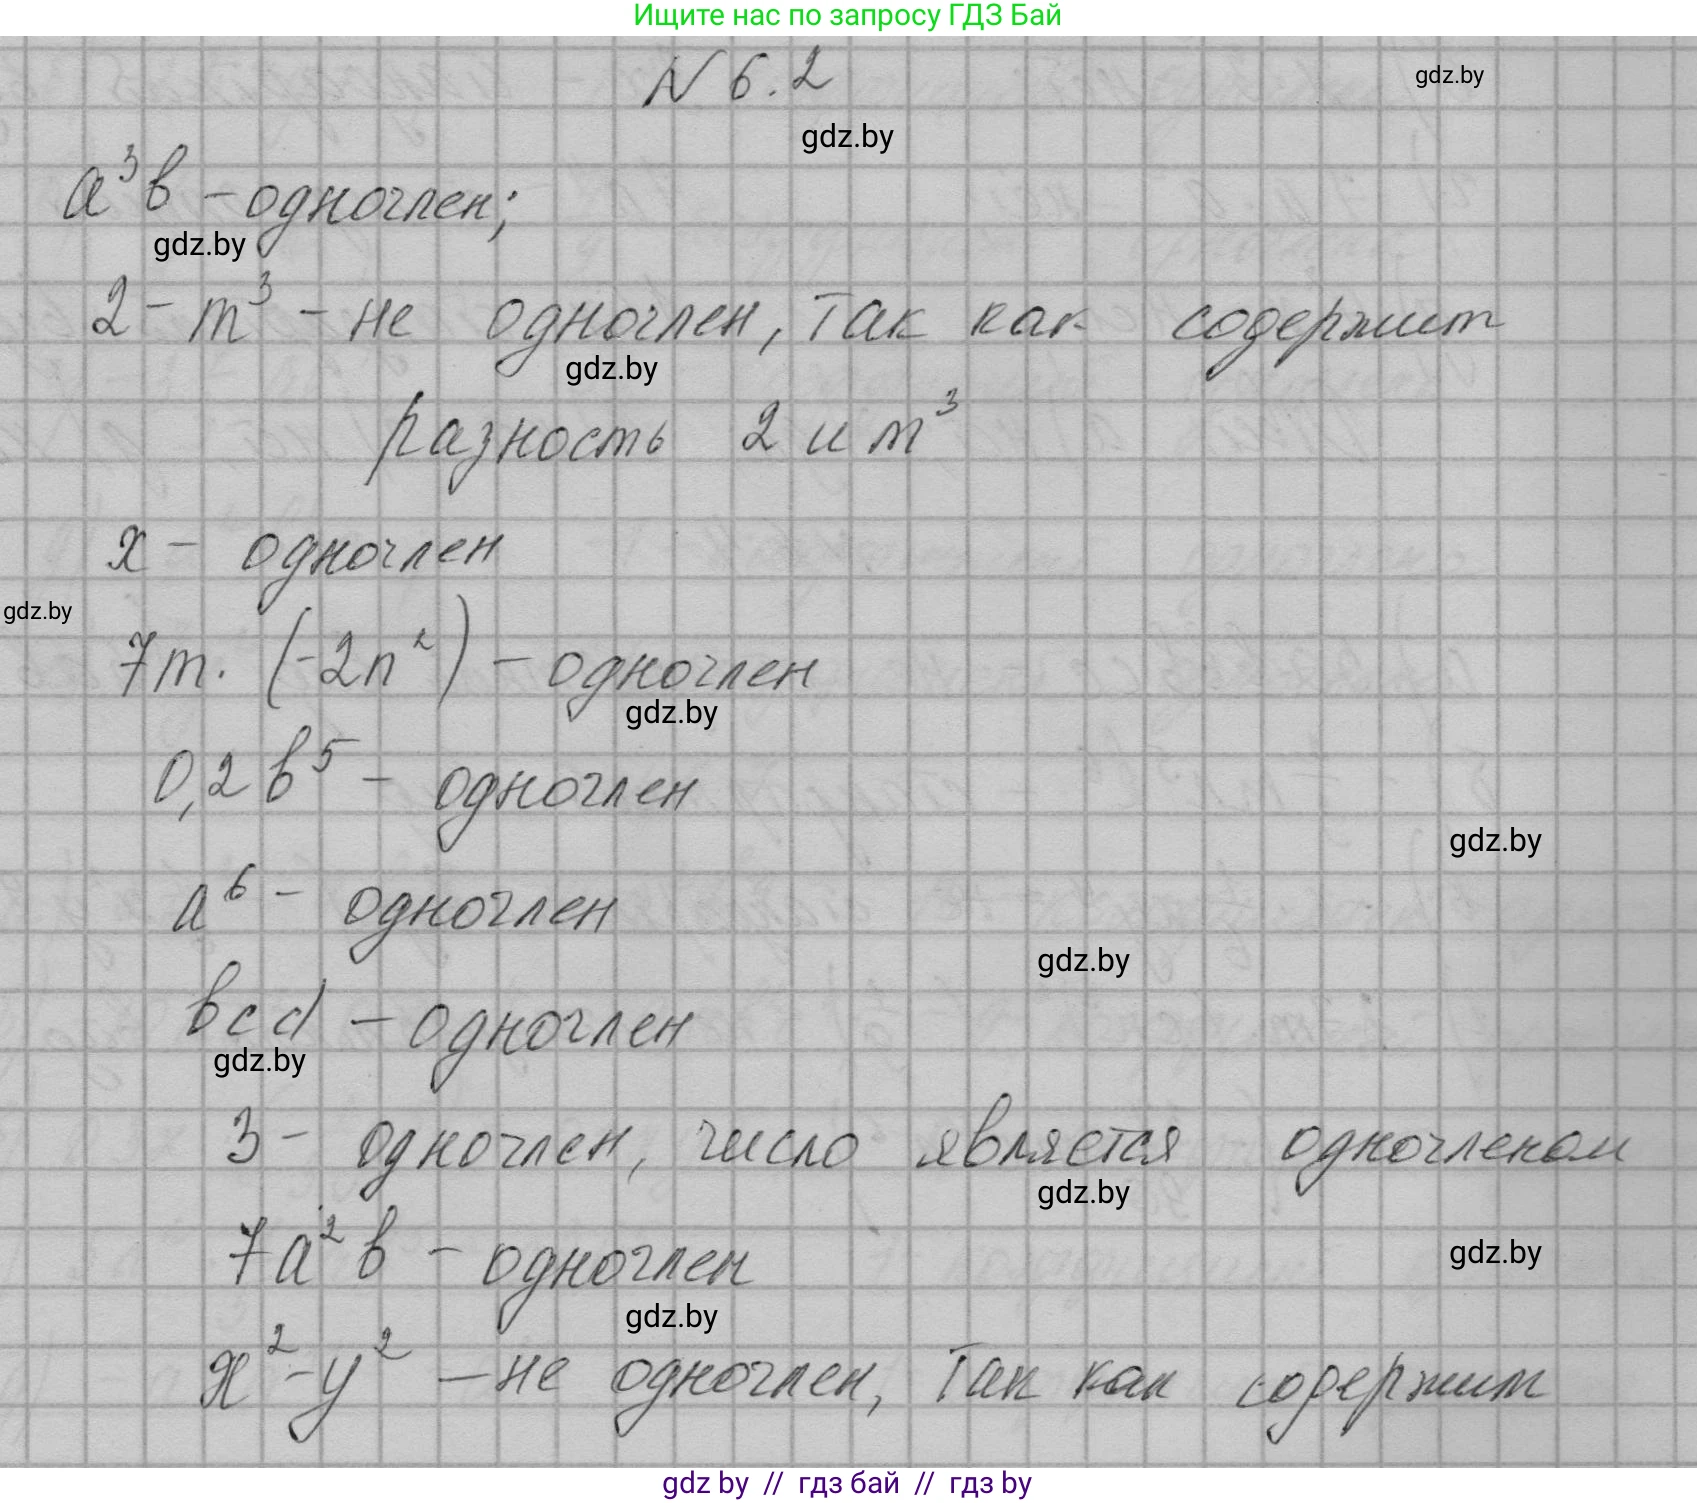 Ищите нас по запросу ГДЗ Бай
N 6.2
gdz.by
gdz.by
a³b - одночлен;
gdz.by
2 - m³ - не одночлен, так как содержит
gdz.by
разность 2 и m³
x - одночлен
gdz.by
7m · (-2n²) - одночлен
gdz.by
0,2b⁵ - одночлен
gdz.by
a⁶ - одночлен
gdz.by
bcd - одночлен
gdz.by
3 - одночлен, число является одночленом
gdz.by
7a²b - одночлен
gdz.by
gdz.by
x² - y² - не одночлен, так как содержит
gdz by // гдз бай // гдз by